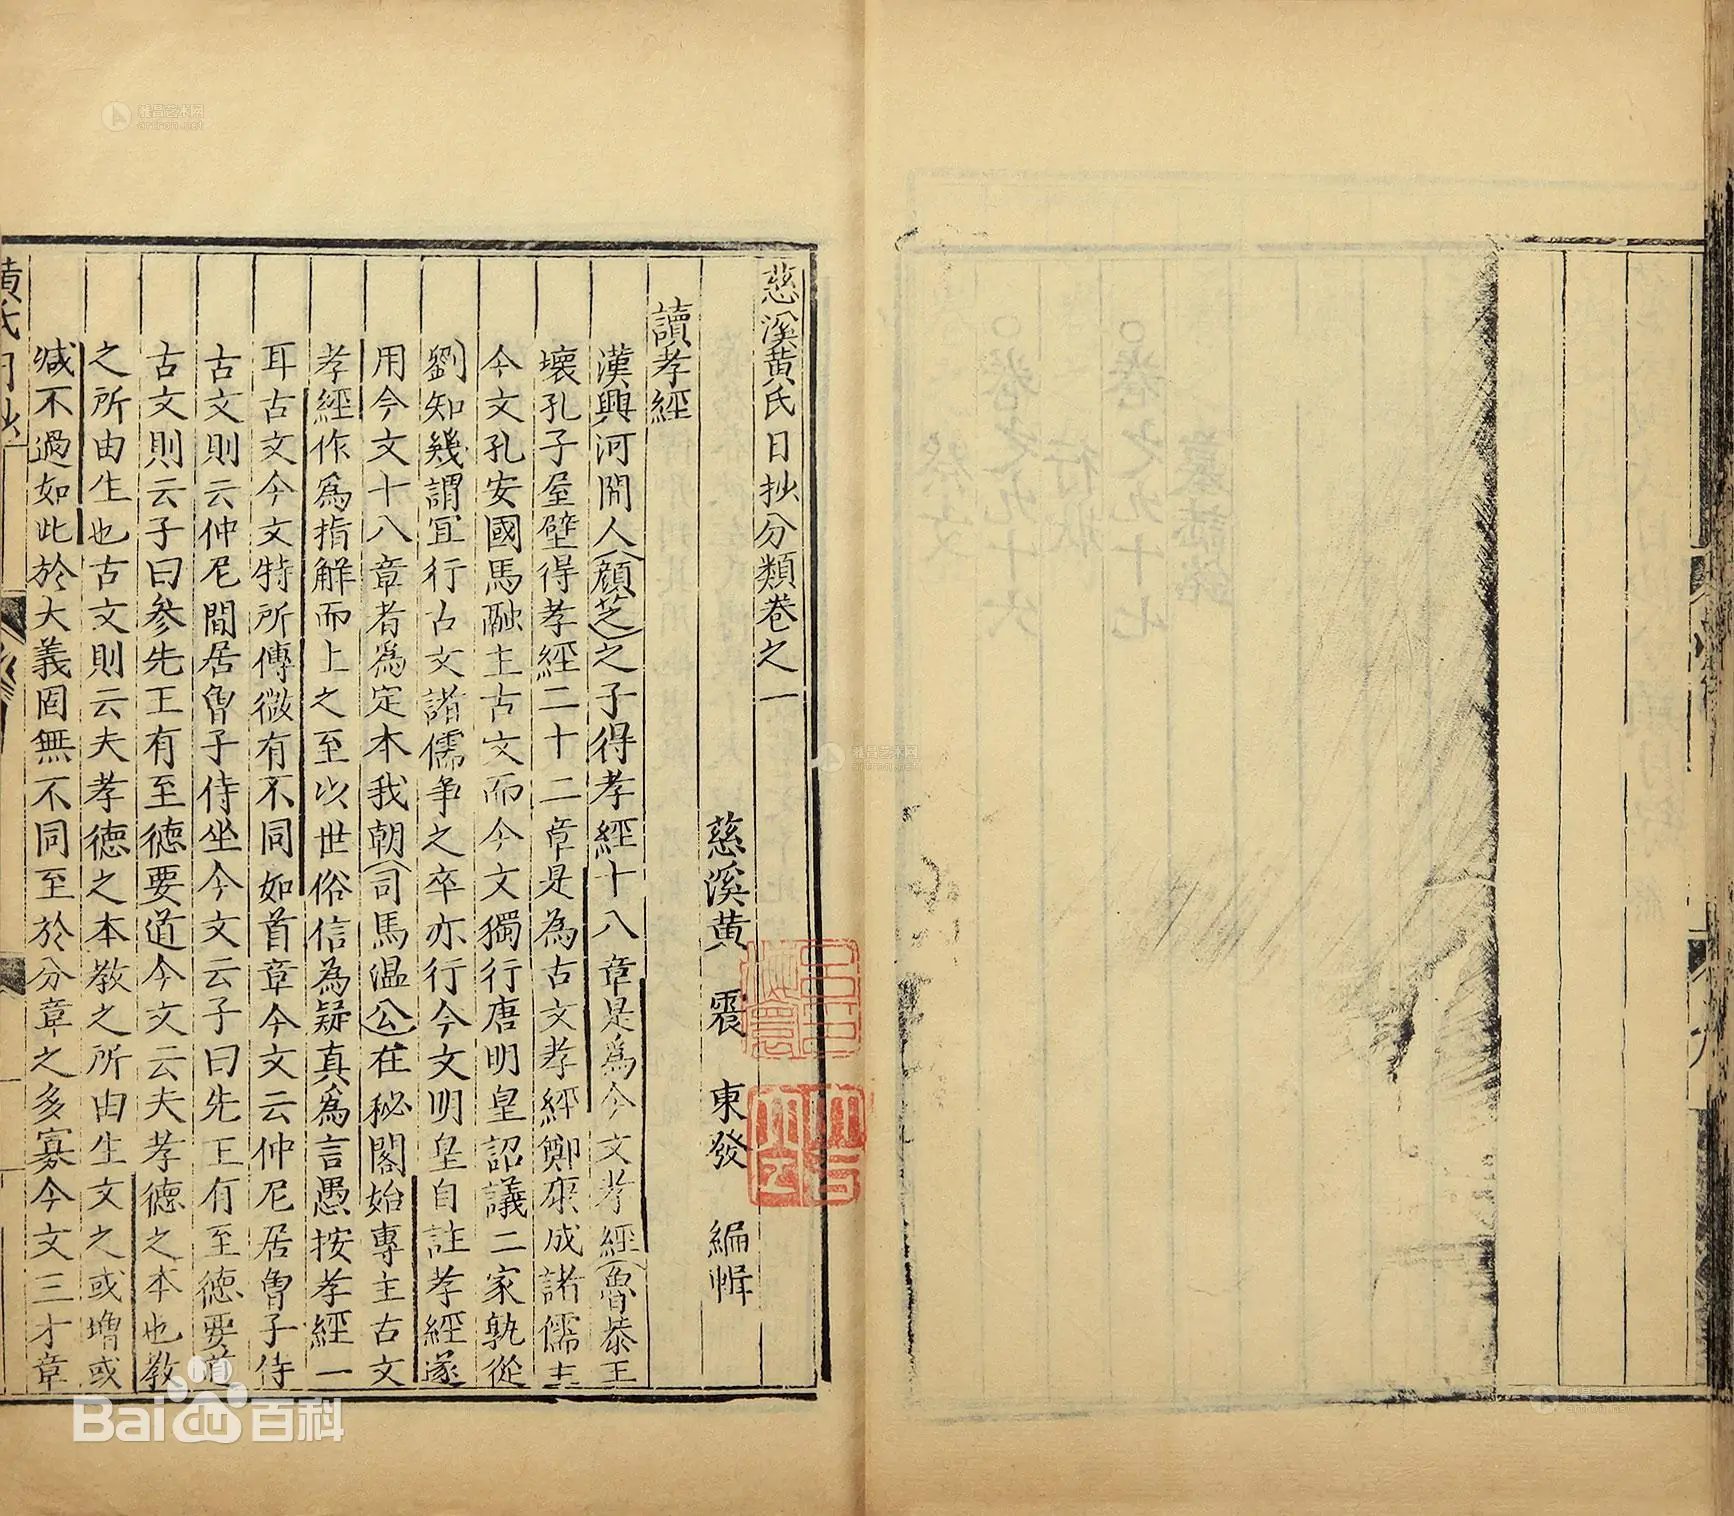 慈溪黄氏日抄分類卷之一
慈溪黄 震 東發 編輯
讀孝經
漢興河間人顔芝之子得孝經十八章是為今文孝經魯恭王
壊孔子屋壁得孝經二十二章是為古文孝經鄭康成諸儒主
今文孔安國馬融主古文而今文獨行唐明皇詔議二家孰從
劉知幾謂宜行古文諸儒争之卒亦行今文明皇自註孝經遂
用今文十八章者為定本我朝司馬温公在秘閣始專主古文
孝經作為指解而上之至以世俗信為疑真為言愚按孝經一
耳古文今文特所傳微有不同如首章今文云仲尼居曾子侍
古文則云仲尼間居曾子侍坐今文云子曰先王有至德要道
古文則云子曰參先王有至德要道今文云夫孝德之本也教
之所由生也古文則云夫孝德之本教之所由生文之或增或
减不過如此於大義固無不同至於分章之多寡今文三才章
黄氏日抄
卷之九十六
卷之九十七
行狀
墓誌銘
雅昌艺术网
artron.net
雅昌艺术网
artron.net
Bai百科